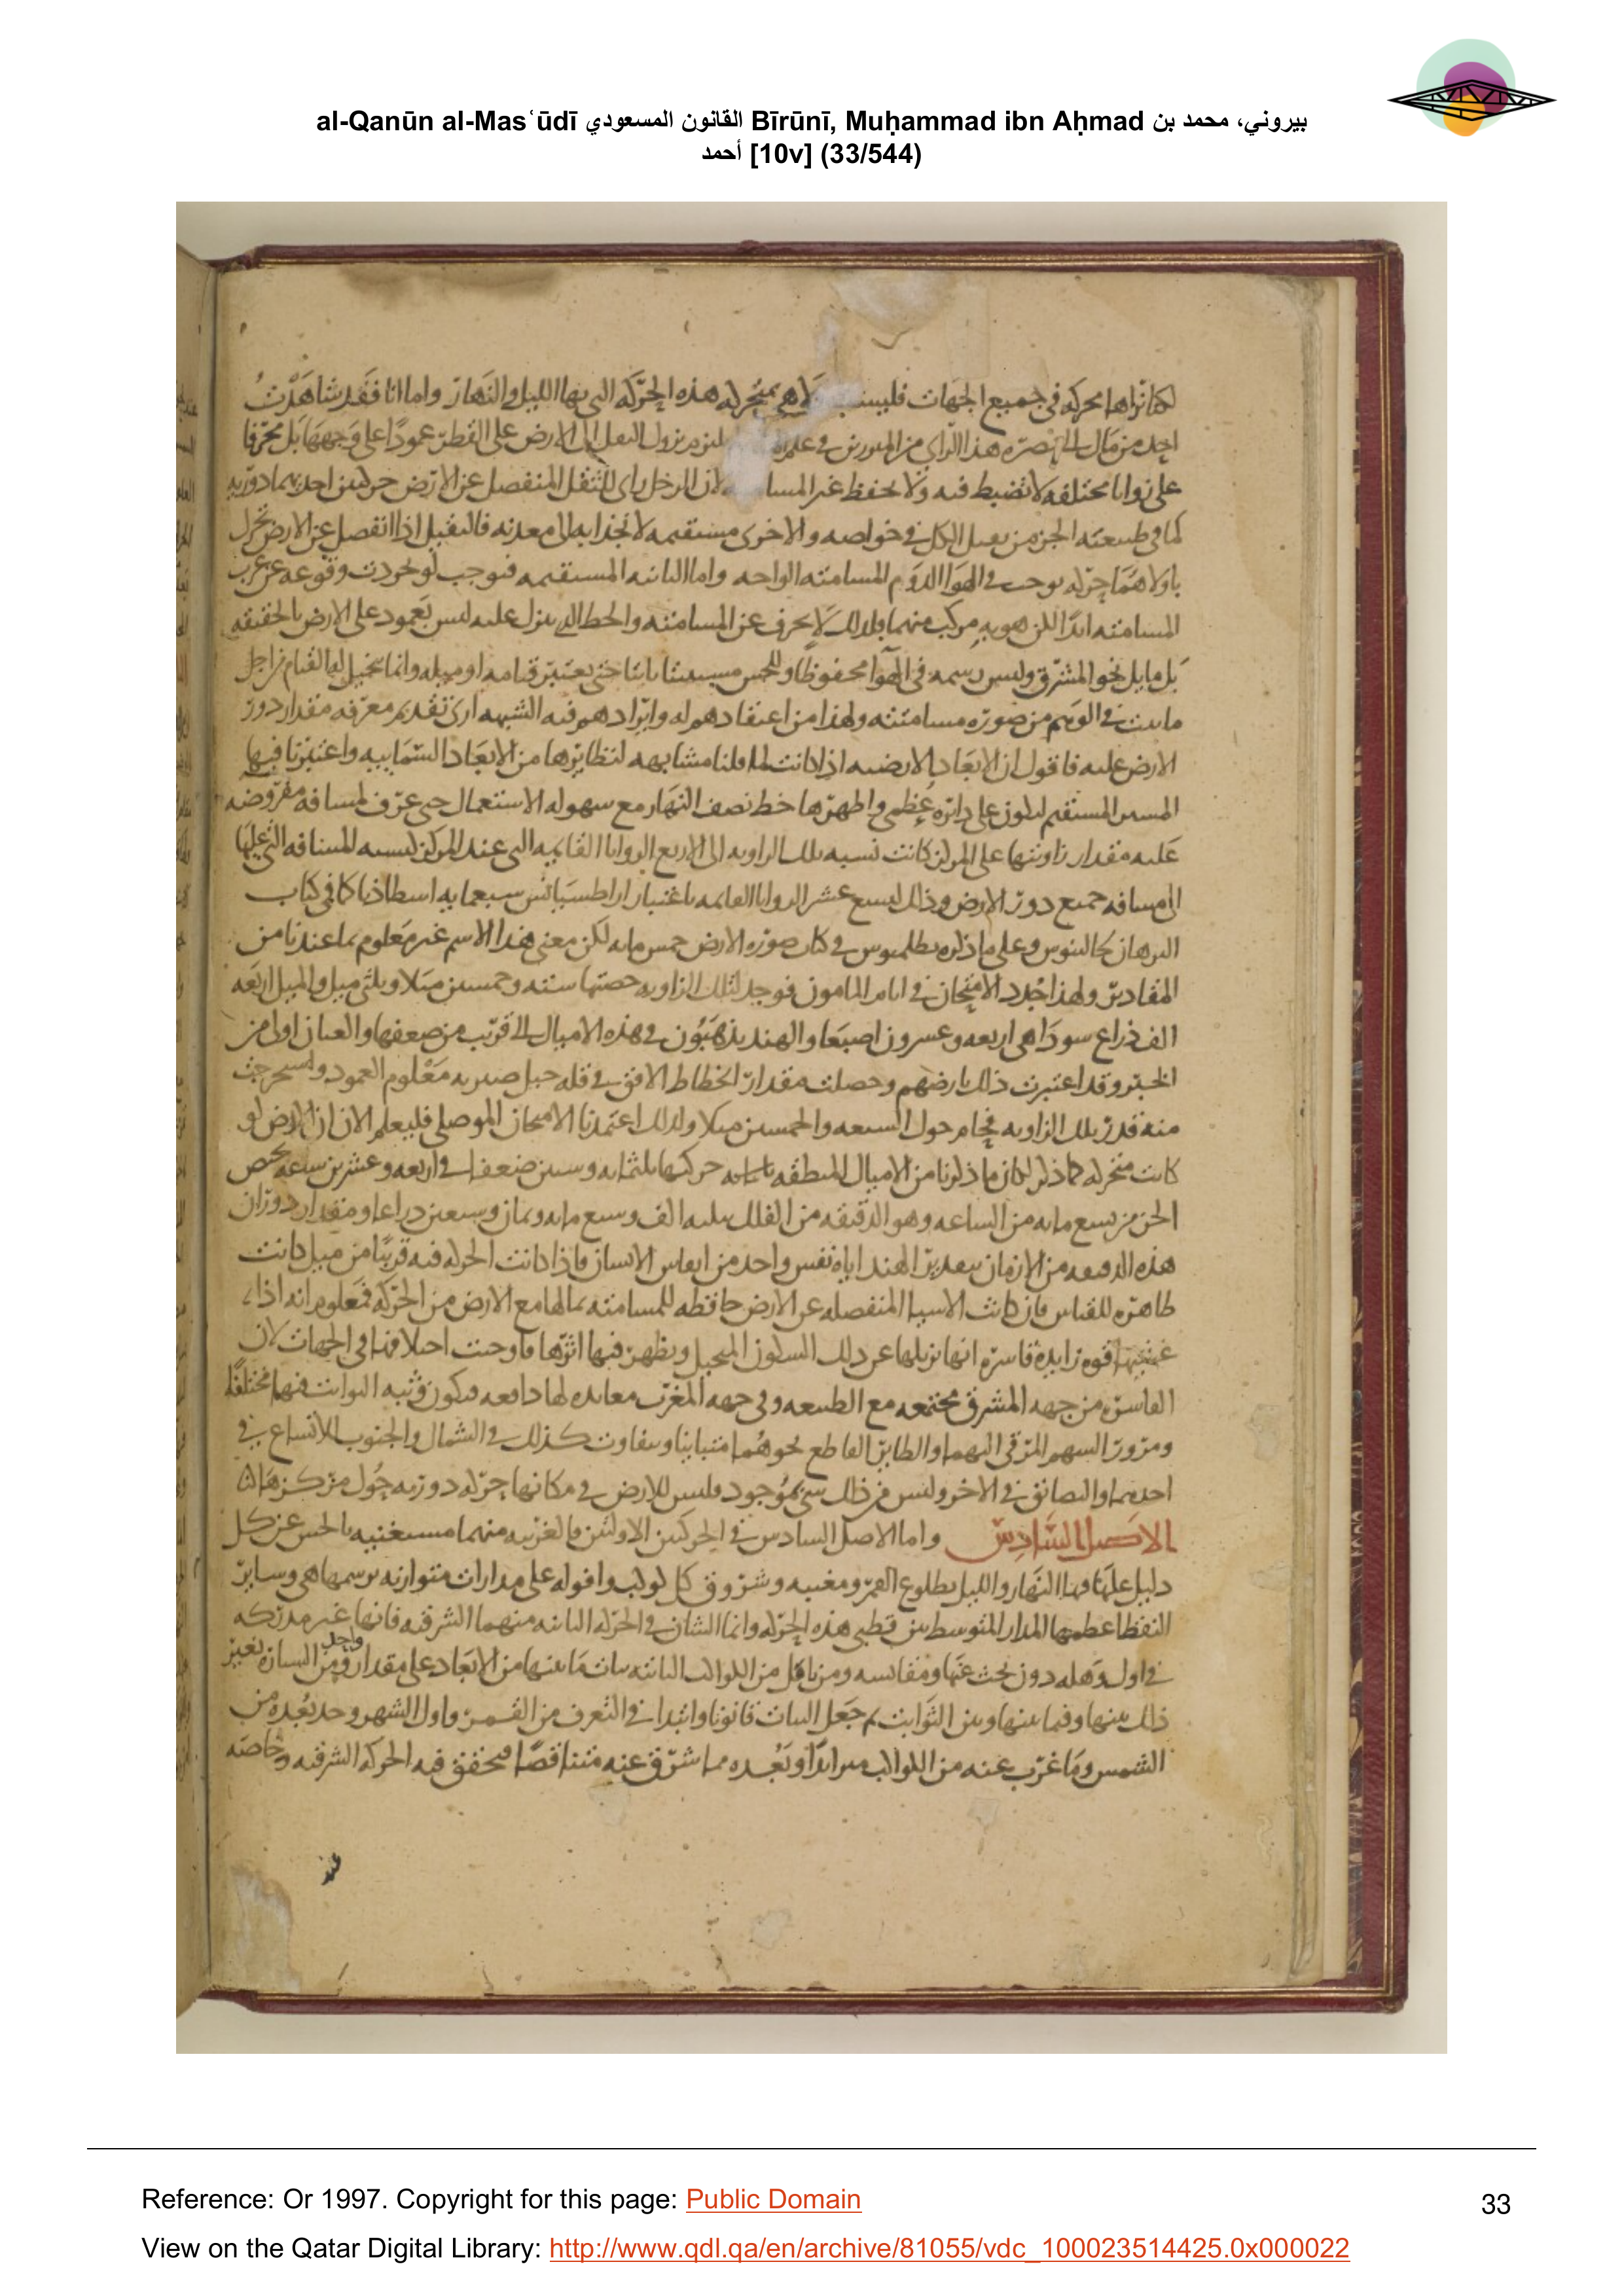 al-Qanūn al-Masʿūdī القانون المسعودي Bīrūnī, Muḥammad ibn Aḥmad بيروني، محمد بن
أحمد [10v] (33/544)
لكنا نراها محركه في جميع الجهات فليست هي بمتحركه هذه الحركه التي بها الليل والنهار واما انا فقد شاهدت
احد من مال الى نصره هذا الراي من المبرزين في علم نزول الثقل الى الارض على القطر عمودا على وجهها بل محرفا
على زوايا مختلفه لا تضبط فيه ولا يحفظ غير لان الرجل راى للثقل المنفصل عن الارض حركتين احديهما دوريه
كما في طبيعته الجزء من الكل في خواصه والاخرى مستقيمه لانجذابه الى معدنه فالثقيل اذا انفصل عن الارض تحرك
المسامته الواحده واما الثانيه المستقيمه فتوجب وقوعه عن غرب
المسامته ابدا لكن هويه مركب منهما فلذلك لا يحرف عن المسامته والخط الذي ينزل عليه ليس بعمود على الارض بالحقيقه
بل مايل نحو المشرق وليس رسمه في الهوا محفوظا وللحس حتى يعتبر قيامه او ميله وانما تخيل له القيام من اجل
في الوهم من صوره مسامتته ولهذا من اعتقادهم له وايرادهم فيه الشبهه ارى تقديم معرفه مقدار دور
الارض عليه فاقول ان الابعاد الارضيه اذا كانت لما قلنا مشابهه لنظايرها من الابعاد السماييه واعتبرنا فيها
المسير المستقيم ليكون على دايره عظمى واظهرها خط نصف النهار مع سهوله الاستعمال حتى عرف لمسافه مفروضه
عليه مقدار زاويتها على المركز كانت نسبه تلك الزاويه الى الاربع الزوايا القايمه التي عند المركز كنسبه المسافه التي عليها
الى مسافه جميع دور الارض وذلك لتسع عشر الزوايا القايمه باعتبار اراطسيانس سبعمايه اسطاذيا كما في كتاب
البرهان لجالينوس وعلى ما ذكره بطلميوس في كتاب صوره الارض خمس مايه لكن معنى هذا الاسم غير معلوم بما عندنا من
المقادير ولهذا جدد الامتحان في ايام المامون فوجد لتلك الزاويه حصتها سته وخمسين ميلا وثلثي ميل والميل اربعه
الف ذراع سودا هي اربعه وعسرون اصبعا والهند يذهبون في هذه الاميال الى قريب من ضعفها والعيان اولى من
الخبر وقد اعتبرت ذلك بارضهم وحصلت مقدار انحطاط الافق في قله جبل صيرته معلوم العمود واستخرجت
منه قدر تلك الزاويه فحام حول السبعه والخمسين ميلا ولذلك اعتمدنا الامتحان الموصلي فليعلم الان ان الارض لو
كانت متحركه كما ذكر لكان ما ذكرنا من الاميال للمنطقه حركتها ثلثمايه وستين ضعفا في اربعه وعشرين ساعه يخص
الجزء من تسع مايه من الساعه وهو الدقيقه من الفلك الف وسبع مايه وثمان وسبعين ذراعا ومقدار دوران
هذه الدقيقه من الازمان بتقدير الهند اياه نفس واحد من انفاس الانسان فاذا كانت الحركه فيه قريبا من ميل كانت
ظاهره للقياس فان كانت الاشيا المنفصله عن الارض حافظه للمسامته بمالها مع الارض من الحركه فمعلوم انه اذا
قوه زايده قاسره انها تزيلها عن ذلك السكون المتخيل ويظهر فيها اثرها فاوجبت اختلافا في الجهات لان
القاسره من جهه المشرق مجتمعه مع الطبيعه وفي جهه المغرب معانده لها دافعه فيكون وثبه الواثب فيهما مختلفا
ومرور السهم المرقى اليهما والطاير القاطع نحوهما متباينا ويتفاوت كذلك في الشمال والجنوب للاتساع في
احدهما والتضايق في الاخر وليس من ذلك شي بموجود فليس للارض في مكانها حركه دوريه حول مركزها
الاصل السادس واما الاصل السادس في الحركتين الاولتين فالغربيه منهما مستغنيه بالحس عن كل
دليل عليها النهار والليل بطلوع القمر ومغيبه وشروق كل كوكب وافوله على مدارات متوازيه ترسمها هي وساير
النقط اعظمها المدار المتوسط بين قطبي هذه الحركه وانما الشان في الحركه الثانيه منهما الشرقيه فانها غير مدركه
في اول وهله دون بحث عنها ومقايسه ومن تامل من الكواكب الثابته ثبات ما بينها من الابعاد على مقدار واحد ومن السياره تغير
ذلك بينها وفيما بينها وبين الثوابت ثم جعل الثبات قانونا وابتدا في التعرف من القمر واول الشهر وجد بعده من
الشمس وما غرب عنه من الكواكب متزايدا وبعده مما شرق عنه متناقصا فتحقق فيه الحركه الشرقيه وخاصه
Reference: Or 1997. Copyright for this page: Public Domain
33
View on the Qatar Digital Library: http://www.qdl.qa/en/archive/81055/vdc_100023514425.0x000022